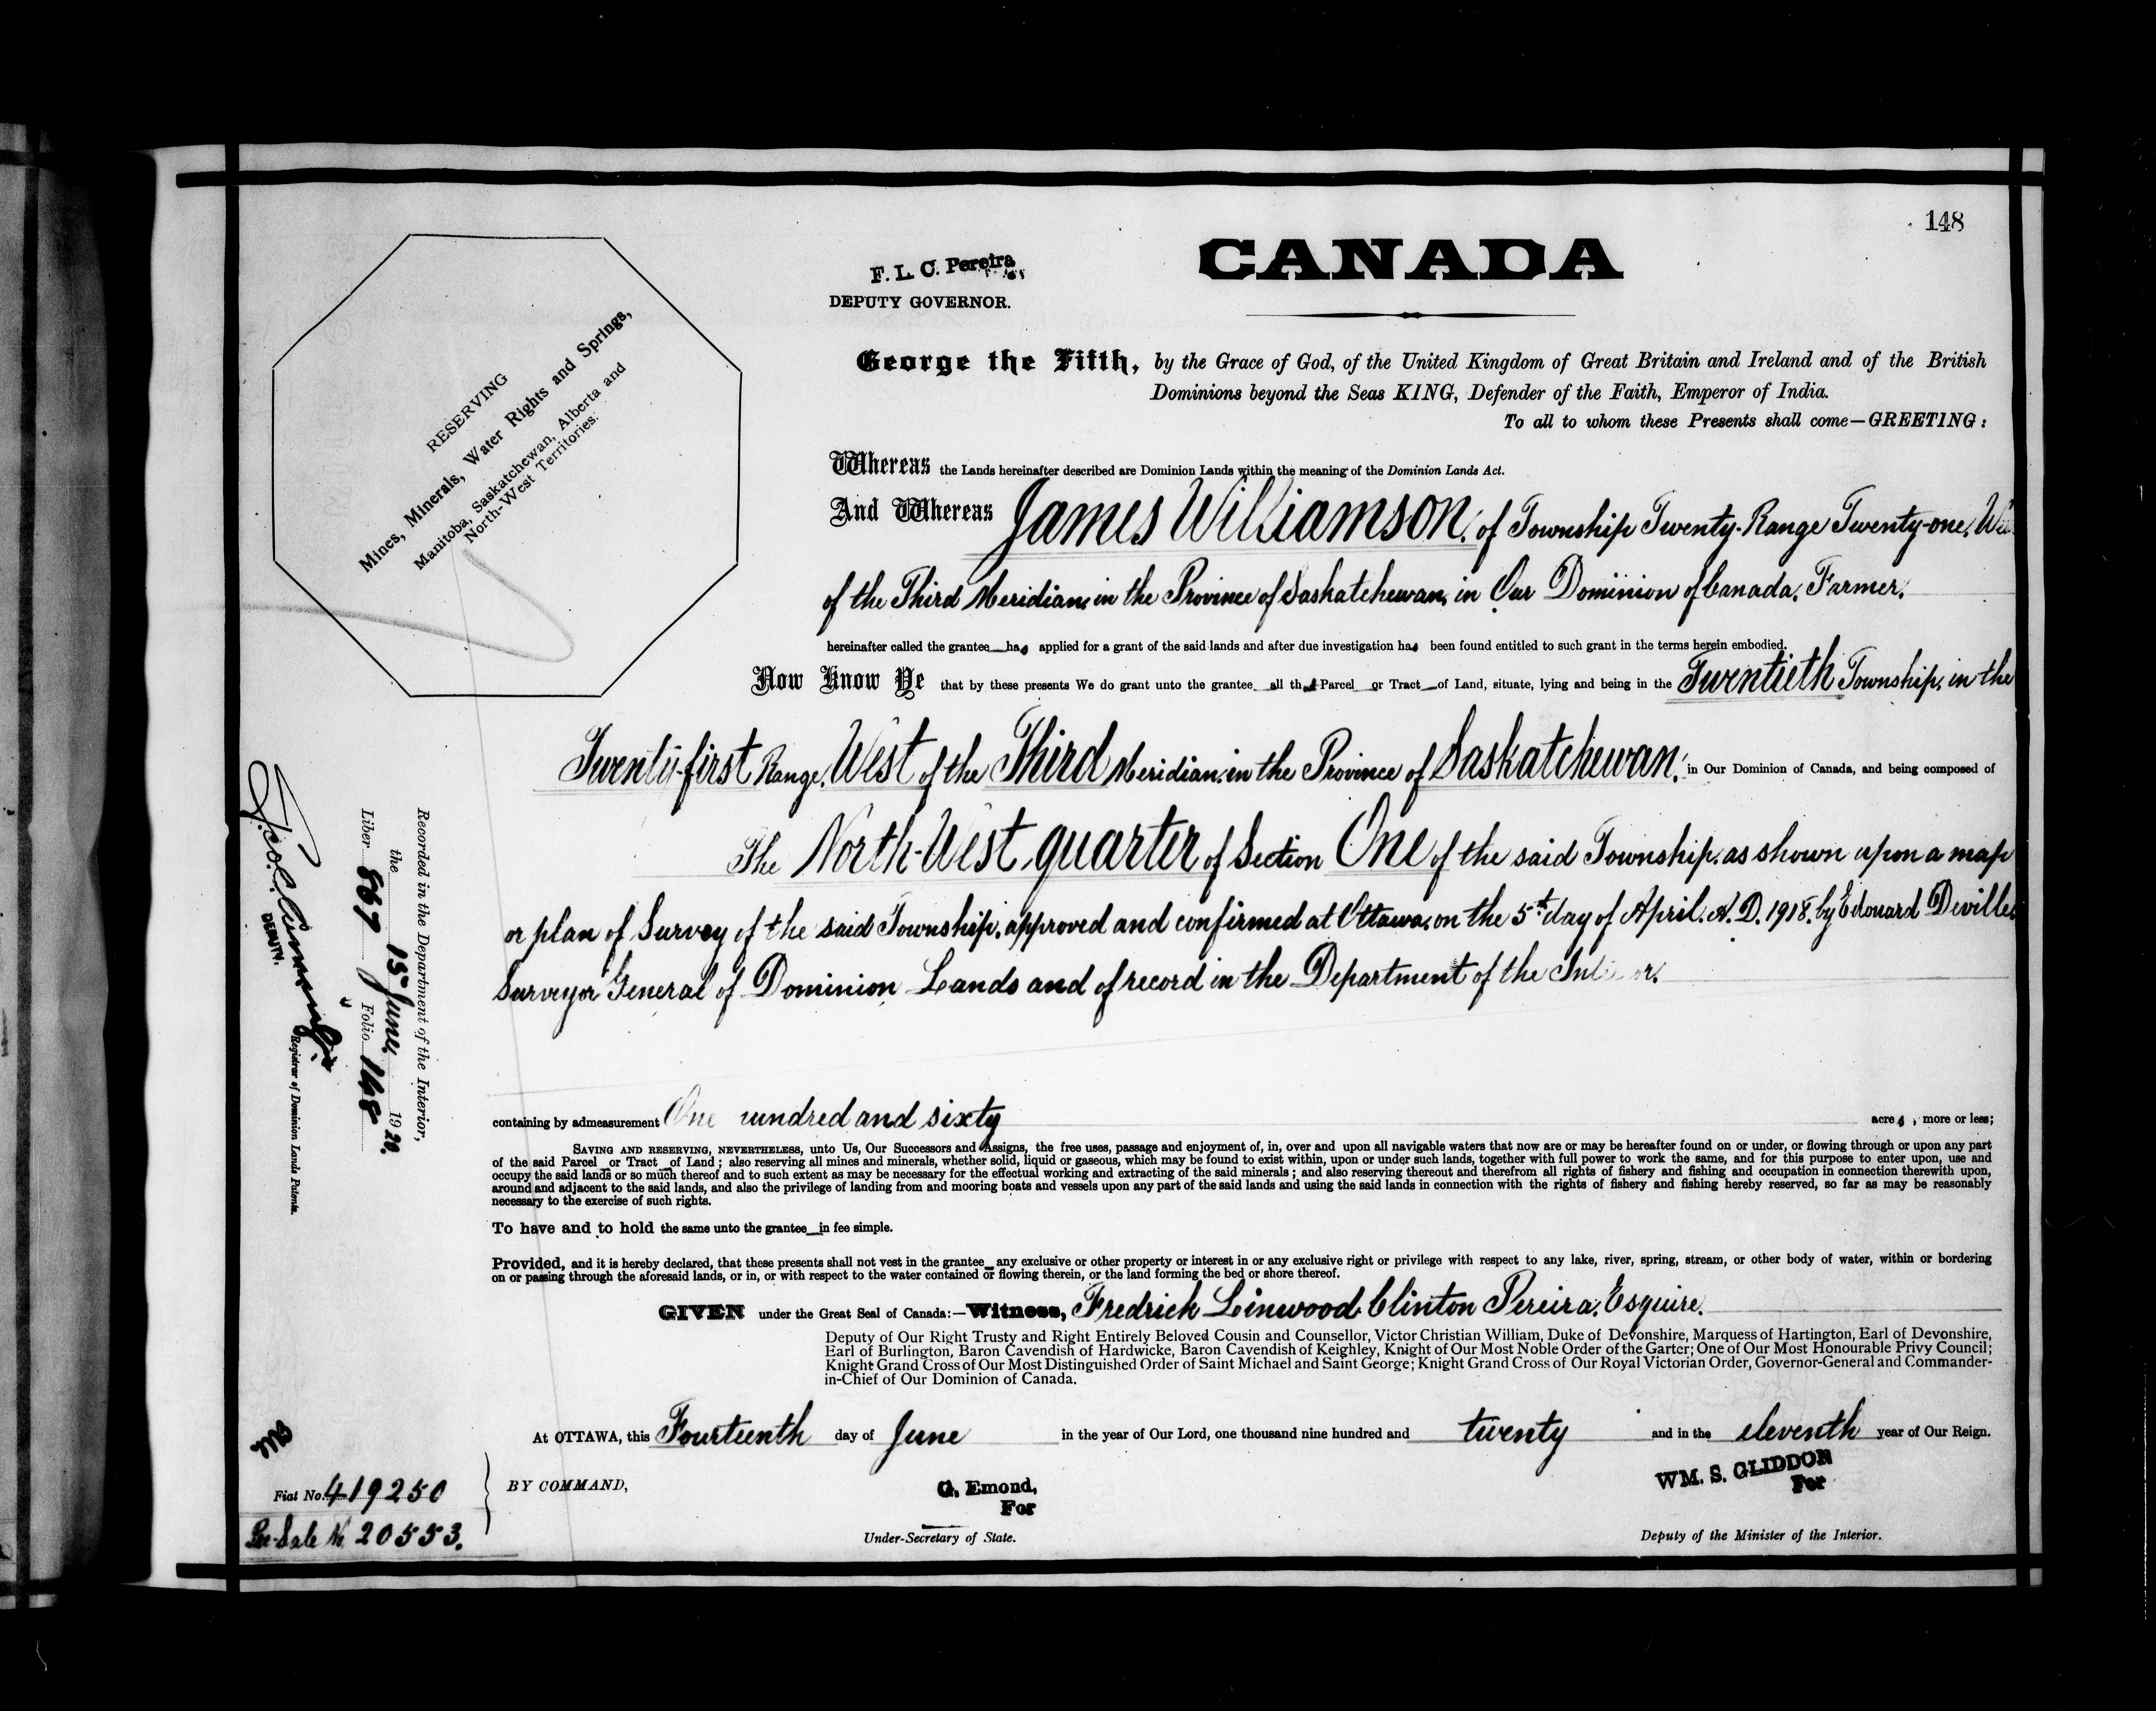 148
CANADA
F. L. C. Pereira
DEPUTY GOVERNOR.
RESERVING
Mines, Minerals, Water Rights and Springs,
Manitoba, Saskatchewan, Alberta and
North-West Territories.
George the Fifth, by the Grace of God, of the United Kingdom of Great Britain and Ireland and of the British
Dominions beyond the Seas KING, Defender of the Faith, Emperor of India.
To all to whom these Presents shall come—GREETING:
Whereas the Lands hereinafter described are Dominion Lands within the meaning of the Dominion Lands Act.
And Whereas James Williamson, of Township Twenty, Range Twenty-one,
of the Third Meridian, in the Province of Saskatchewan, in Our Dominion of Canada, Farmer,
hereinafter called the grantee has applied for a grant of the said lands and after due investigation has been found entitled to such grant in the terms herein embodied.
Now Know Ye that by these presents We do grant unto the grantee all that Parcel or Tract of Land, situate, lying and being in the Twentieth Township, in the
Twenty-first Range, West of the Third Meridian, in the Province of Saskatchewan, in Our Dominion of Canada, and being composed of
The North-West quarter of Section One of the said Township, as shown upon a map
or plan of Survey of the said Township, approved and confirmed at Ottawa, on the 5th day of April, A. D. 1918, by Edouard Deville,
Surveyor General of Dominion Lands and of record in the Department of the
containing by admeasurement One hundred and sixty acres, more or less;
SAVING AND RESERVING, NEVERTHELESS, unto Us, Our Successors and Assigns, the free uses, passage and enjoyment of, in, over and upon all navigable waters that now are or may be hereafter found on or under, or flowing through or upon any part
of the said Parcel or Tract of Land; also reserving all mines and minerals, whether solid, liquid or gaseous, which may be found to exist within, upon or under such lands, together with full power to work the same, and for this purpose to enter upon, use and
occupy the said lands or so much thereof and to such extent as may be necessary for the effectual working and extracting of the said minerals; and also reserving thereout and therefrom all rights of fishery and fishing and occupation in connection therewith upon,
around and adjacent to the said lands, and also the privilege of landing from and mooring boats and vessels upon any part of the said lands and using the said lands in connection with the rights of fishery and fishing hereby reserved, so far as may be reasonably
necessary to the exercise of such rights.
To have and to hold the same unto the grantee in fee simple.
Provided, and it is hereby declared, that these presents shall not vest in the grantee any exclusive or other property or interest in or any exclusive right or privilege with respect to any lake, river, spring, stream, or other body of water, within or bordering
on or passing through the aforesaid lands, or in, or with respect to the water contained or flowing therein, or the land forming the bed or shore thereof.
GIVEN under the Great Seal of Canada:—Witness, Fredrick Linwood Clinton Pereira, Esquire,
Deputy of Our Right Trusty and Right Entirely Beloved Cousin and Counsellor, Victor Christian William, Duke of Devonshire, Marquess of Hartington, Earl of Devonshire,
Earl of Burlington, Baron Cavendish of Hardwicke, Baron Cavendish of Keighley, Knight of Our Most Noble Order of the Garter; One of Our Most Honourable Privy Council;
Knight Grand Cross of Our Most Distinguished Order of Saint Michael and Saint George; Knight Grand Cross of Our Royal Victorian Order, Governor-General and Commander-
in-Chief of Our Dominion of Canada.
At OTTAWA, this Fourteenth day of June in the year of Our Lord, one thousand nine hundred and twenty and in the eleventh year of Our Reign.
BY COMMAND,
G. Emond,
For
Under-Secretary of State.
WM. S. GLIDDON
For
Deputy of the Minister of the Interior.
Recorded in the Department of the Interior,
the 15th June, 1920.
Liber 867 Folio 148
DEPUTY.
Registrar of Dominion Lands Patents.
Fiat No. 419250
Pre-Sale No 20553.